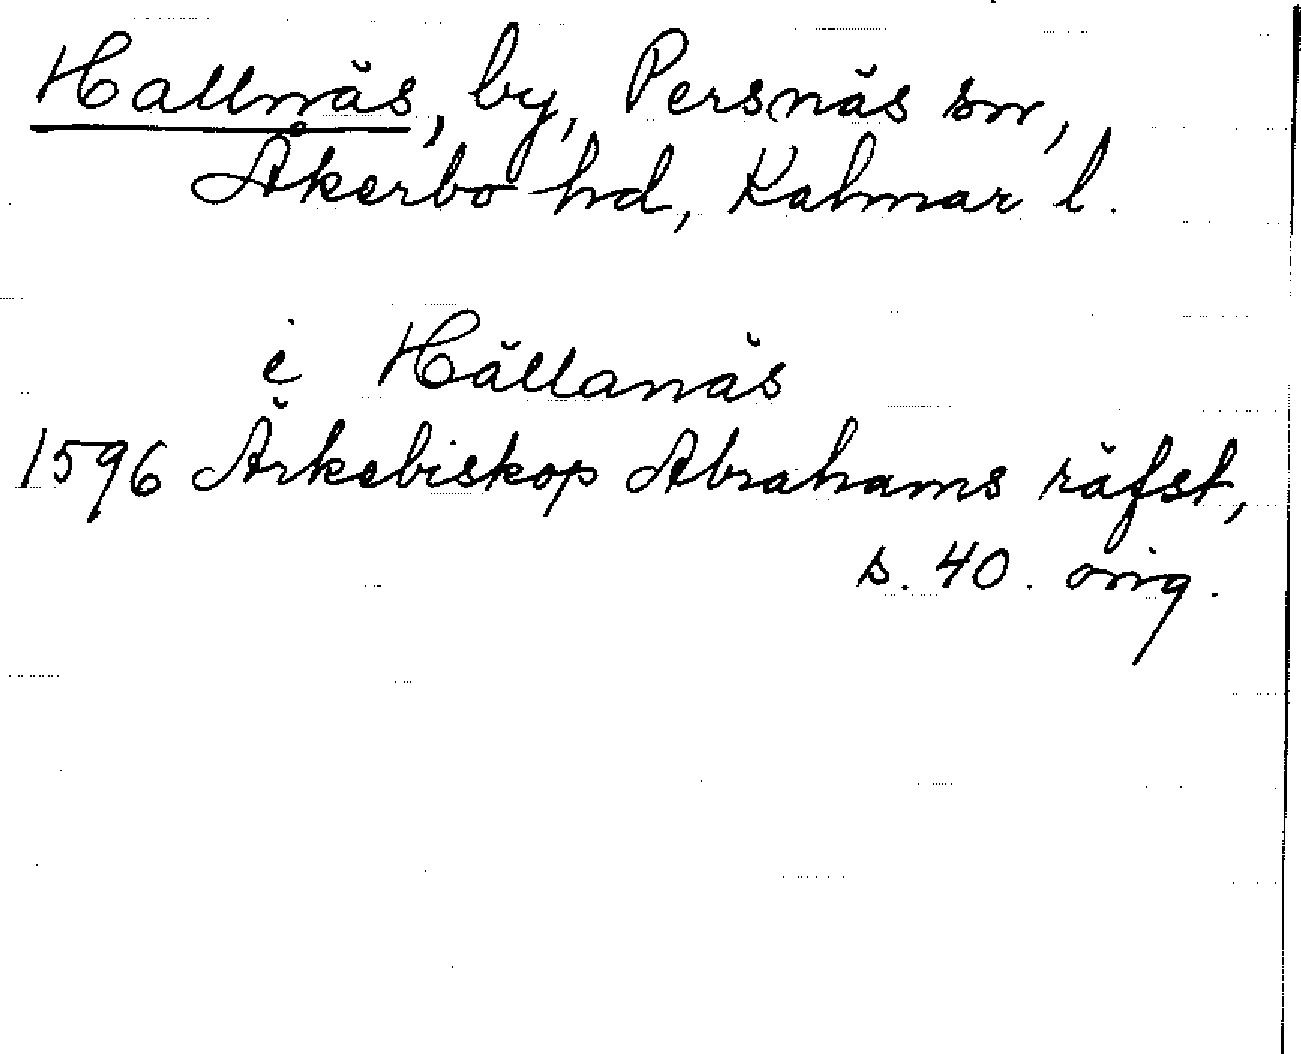 Hallnäs, by, Persnäs sn,
Åkerbo hd, Kalmar l.
i Hällanäs
1596 Ärkebiskop Abrahams räfst,
s. 40. orig.